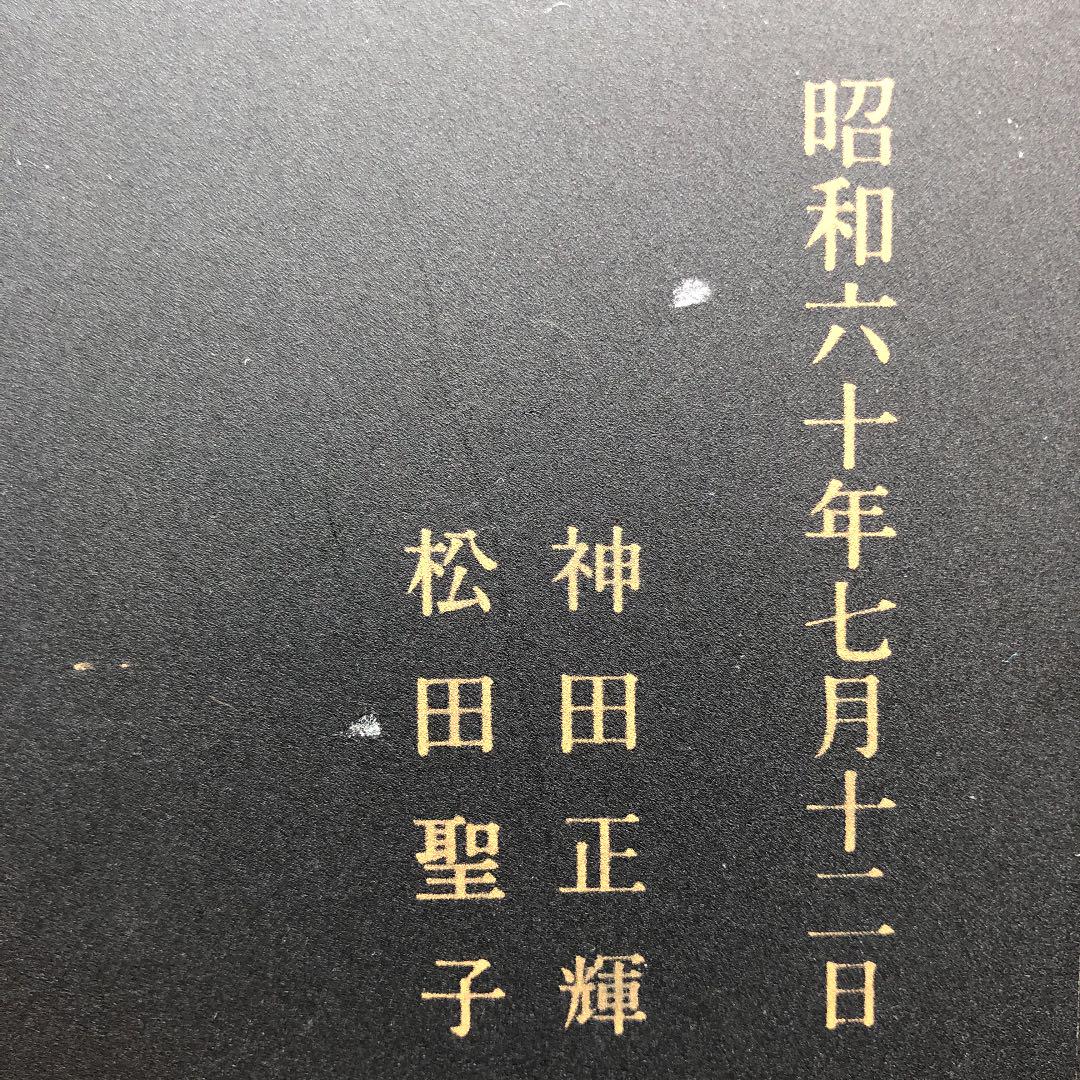 昭和六十年七月十二日
神田正輝
松田聖子